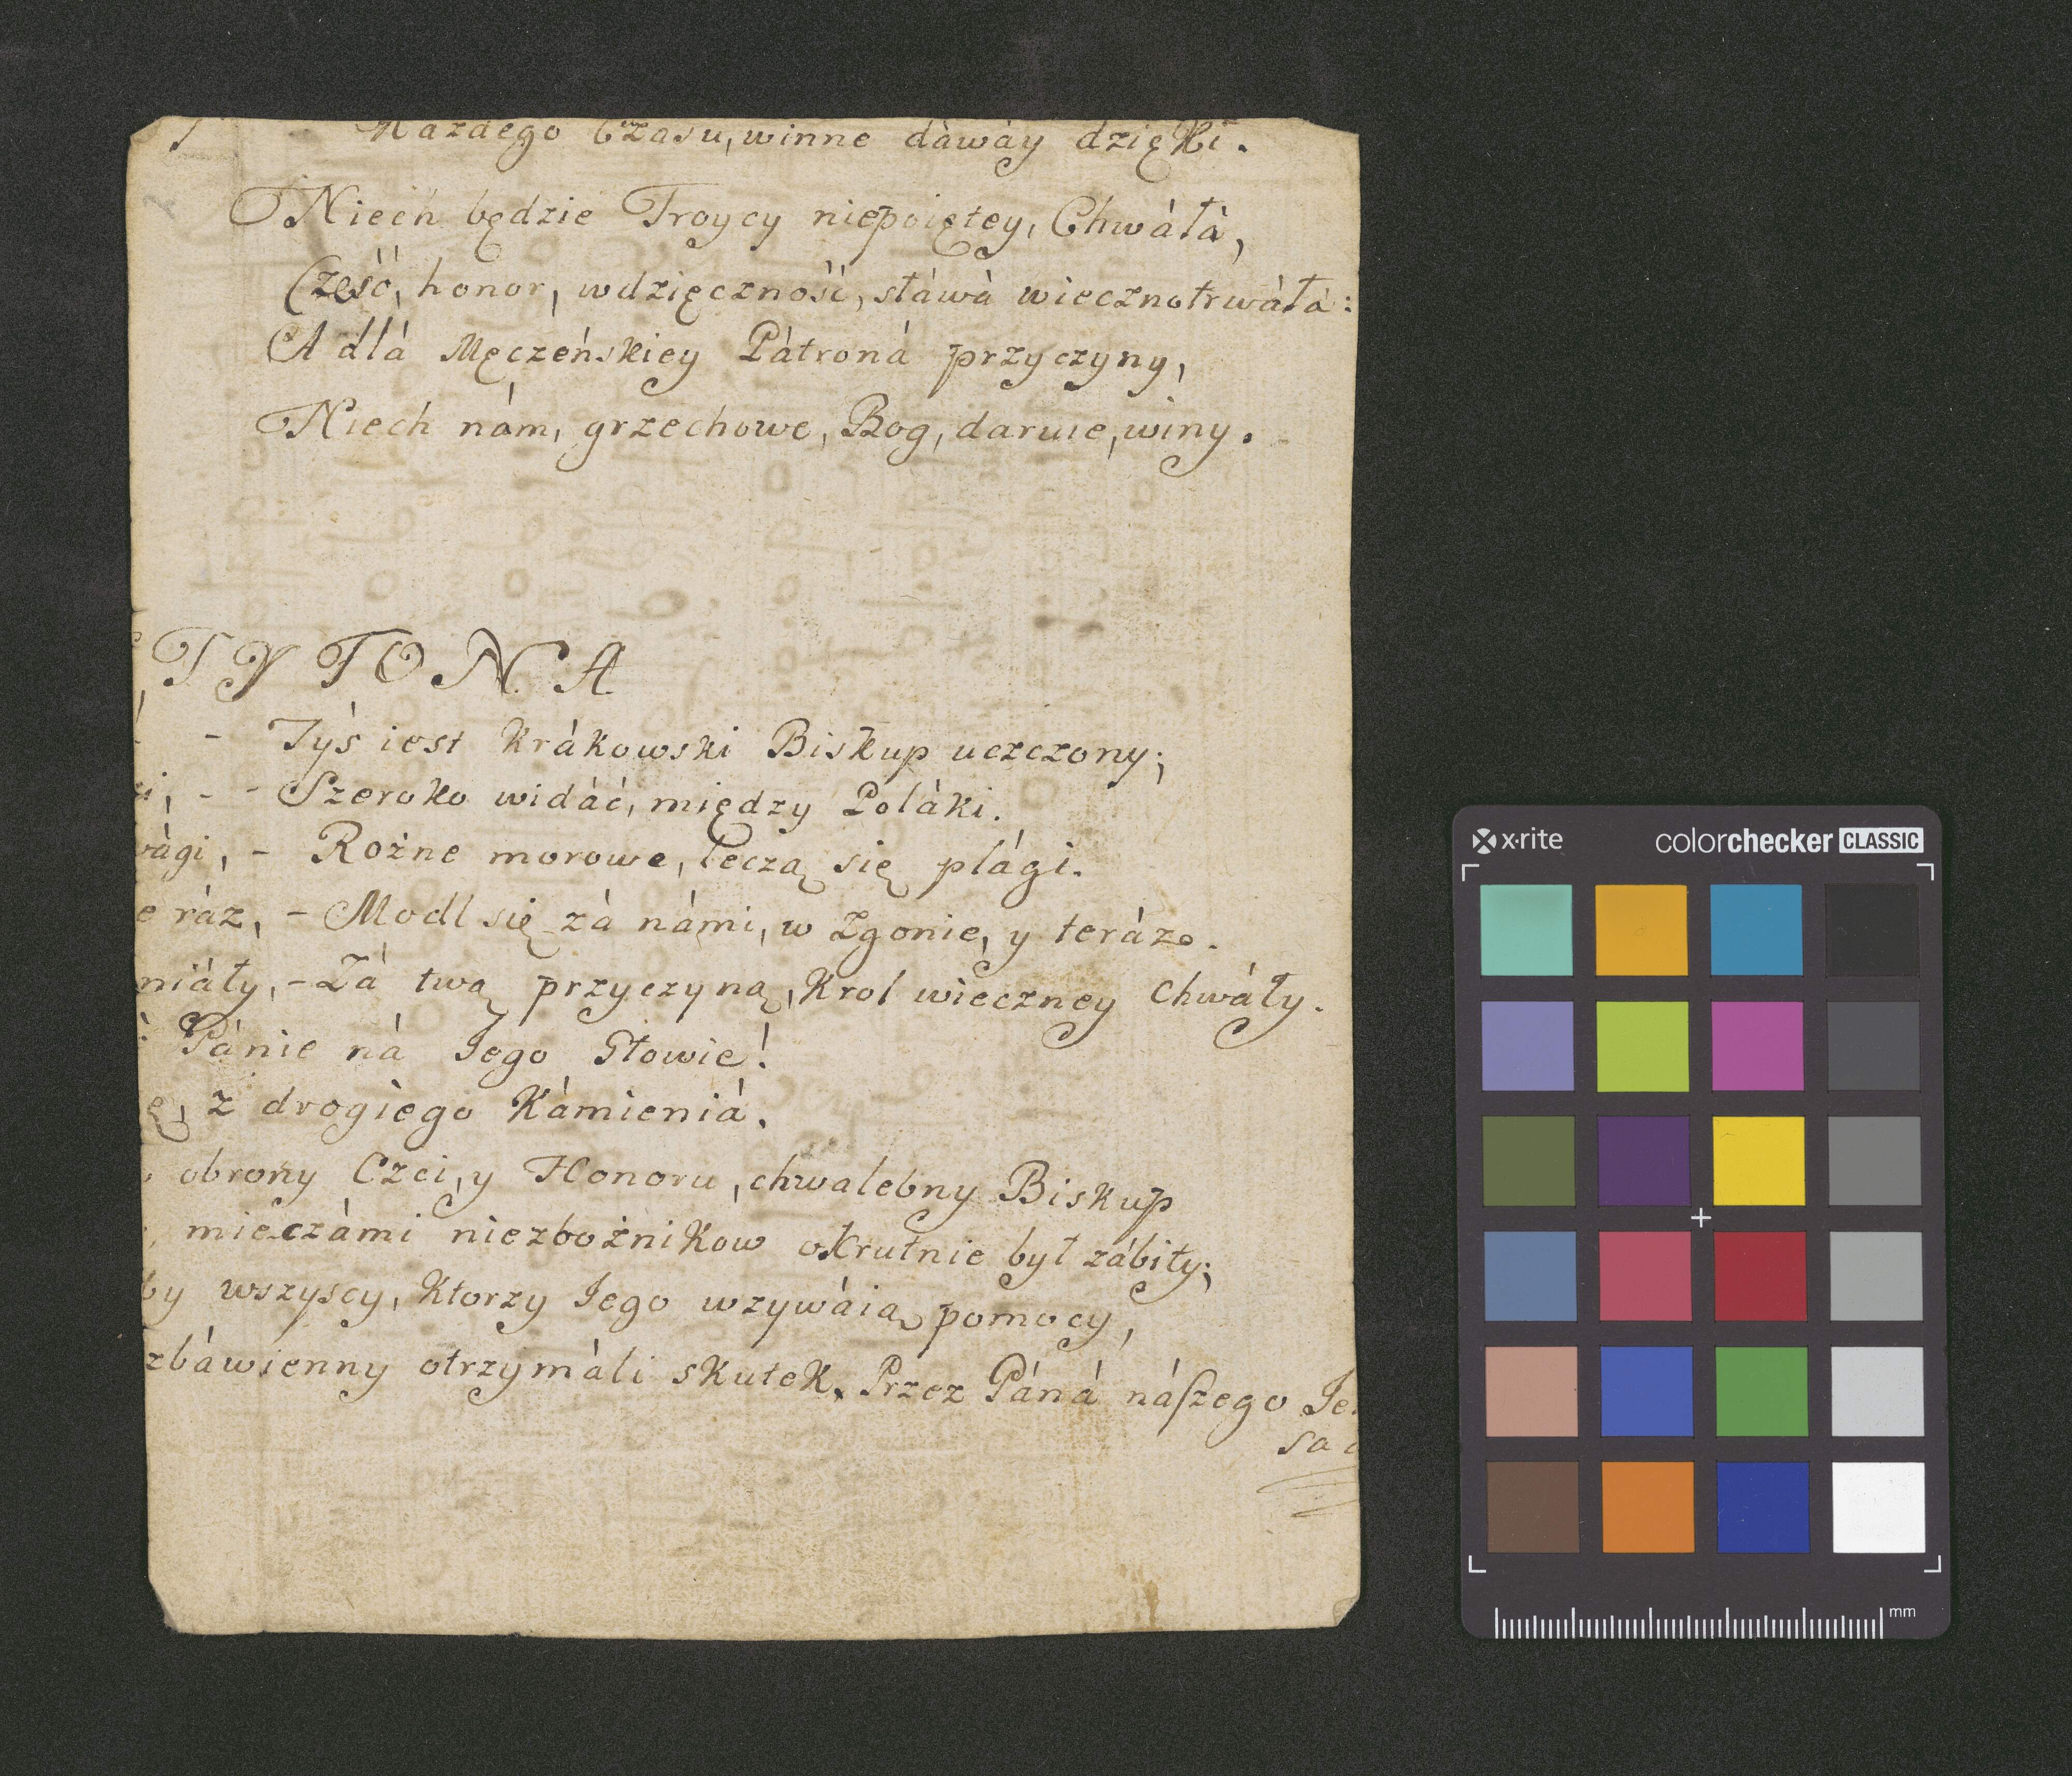 Każdego Czasu, winne dáwáy dzięki.
Niech będzie Troycy niepoiętey, Chwáłá,
Cześć, honor, wdzięczność, słáwá wiecznotrwáłá:
A dlá Męczeńskiey Pátroná przyczyny,
Niech nám, grzechowe, Bog, daruie, winy.
TYTONA
- Tyś iest Krákowski Biskup uczczony;
- - Szeroko widáć, między Poláki.
wági, - Rożne morowe, leczą się plági.
e ráz, - Modl się zá námi, w Zgonie, y teráz.
niáły, - Zá twą przyczyną, Krol wieczney Chwáły.
Pánie ná Jego Głowie!
ę, z drogiego Kámieniá.
obrony Czci, y Honoru, chwalebny Biskup
mieczámi niezbożnikow okrutnie był zábity;
by wszyscy, Ktorzy Jego wzywáią pomocy,
zbáwienny otrzymáli skutek. Przez Páná nászego Je
sa
x·rite colorchecker CLASSIC
mm